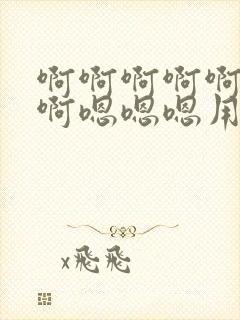 啊啊啊啊啊
啊嗯嗯嗯用
x飛飛